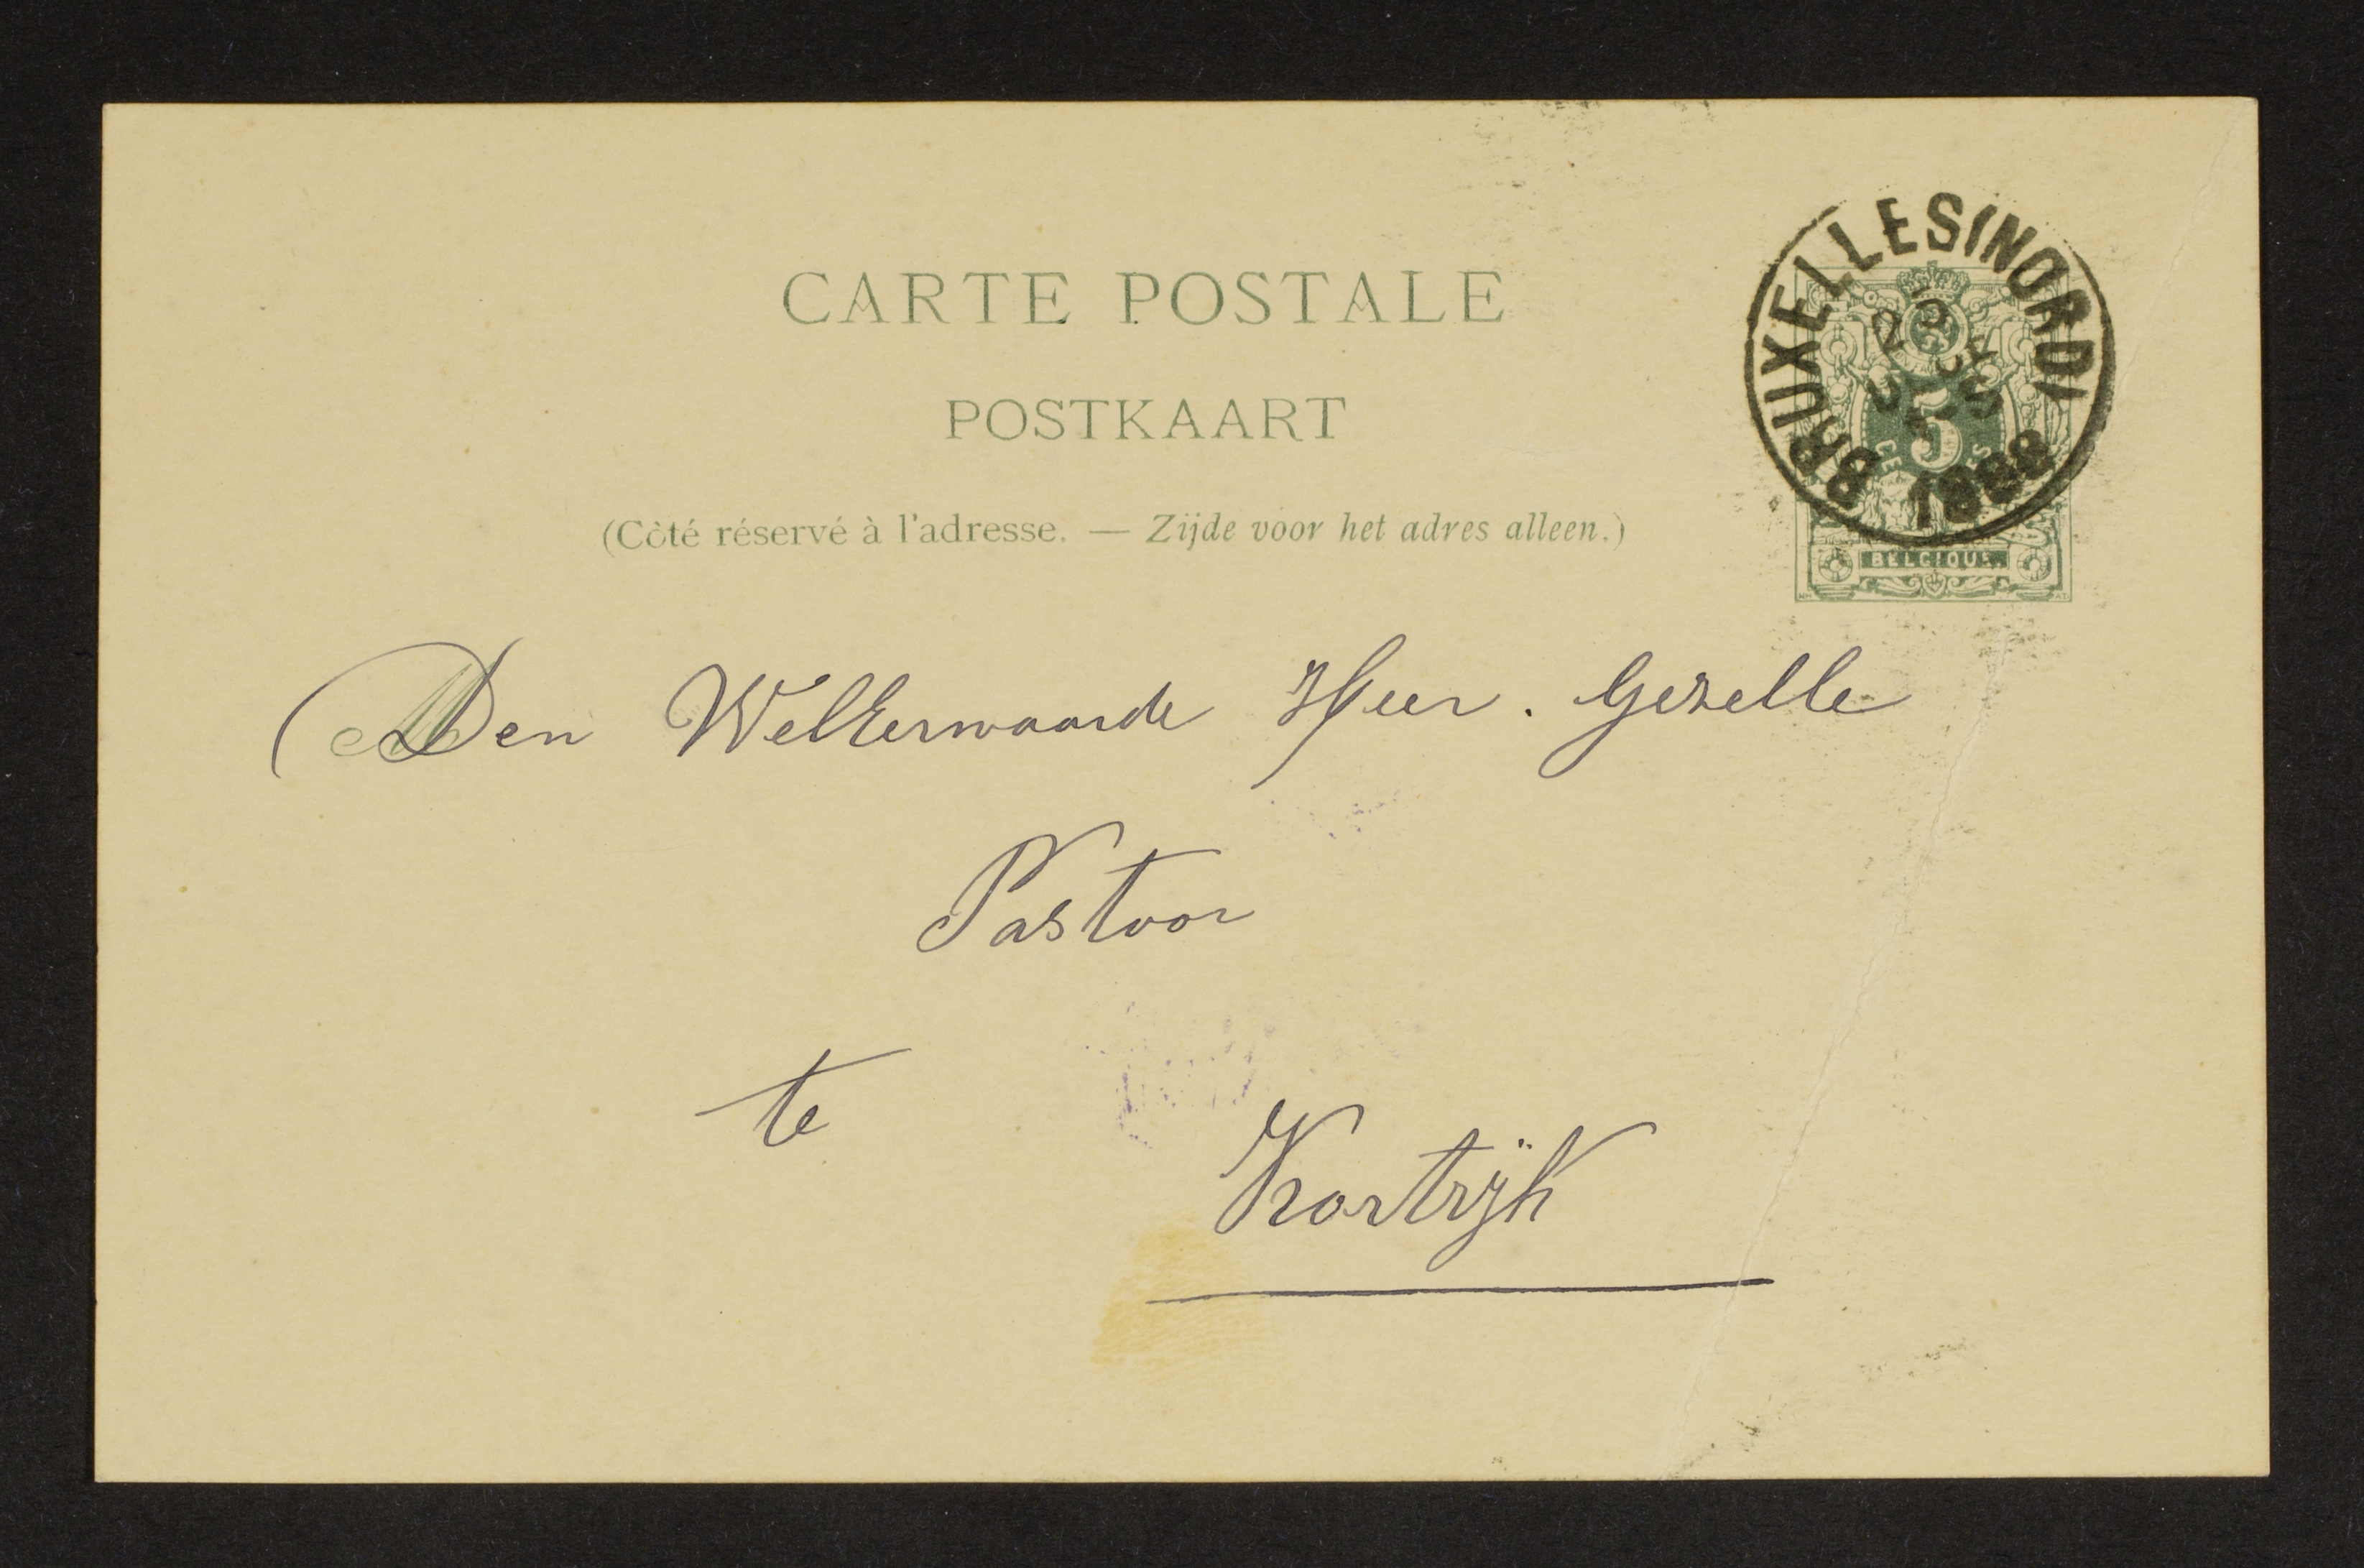 CARTE POSTALE
POSTKAART
(Côté réservé à l'adresse. — Zijde voor het adres alleen.)
BRUXELLES(NORD)
1888
5
BELGIQUE.
Den WelEerwaarde Heer. Gezelle
Pastoor
te
Kortrijk